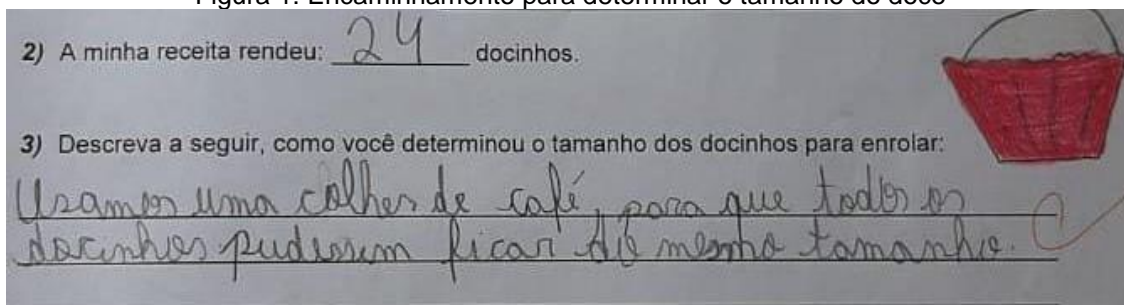 Figura 1: Encaminhamento para determinar o tamanho do doce
2) A minha receita rendeu: 24 docinhos.
3) Descreva a seguir, como você determinou o tamanho dos docinhos para enrolar:
Usamos uma colher de café, para que todos os
docinhos pudessem ficar do mesmo tamanho.